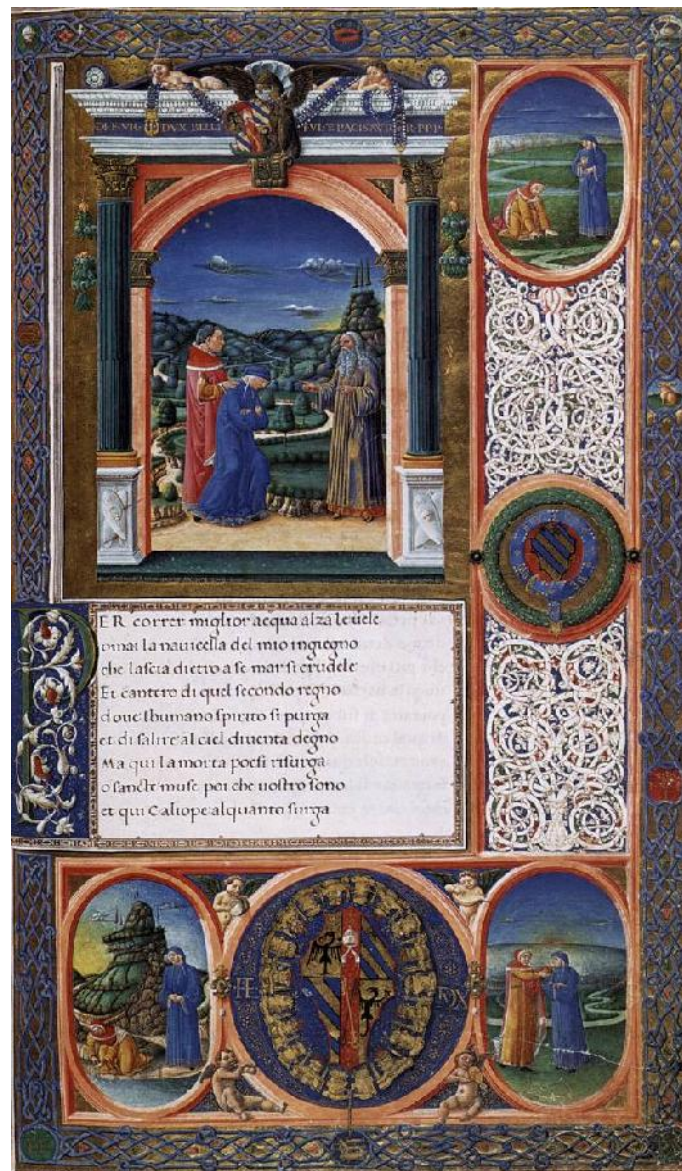 DVX BELLI PACIS
PER correr miglior acqua alza le uele
omai la nauicella del mio ingiegno
che lascia dietro a se mar si crudele
Et cantero di quel secondo regno
doue lhumano spirito si purga
et di salire al ciel diuenta degno
Ma qui la morta poesi risurga
o sancte muse poi che uostro sono
et qui Caliope alquanto surga
FE DVX